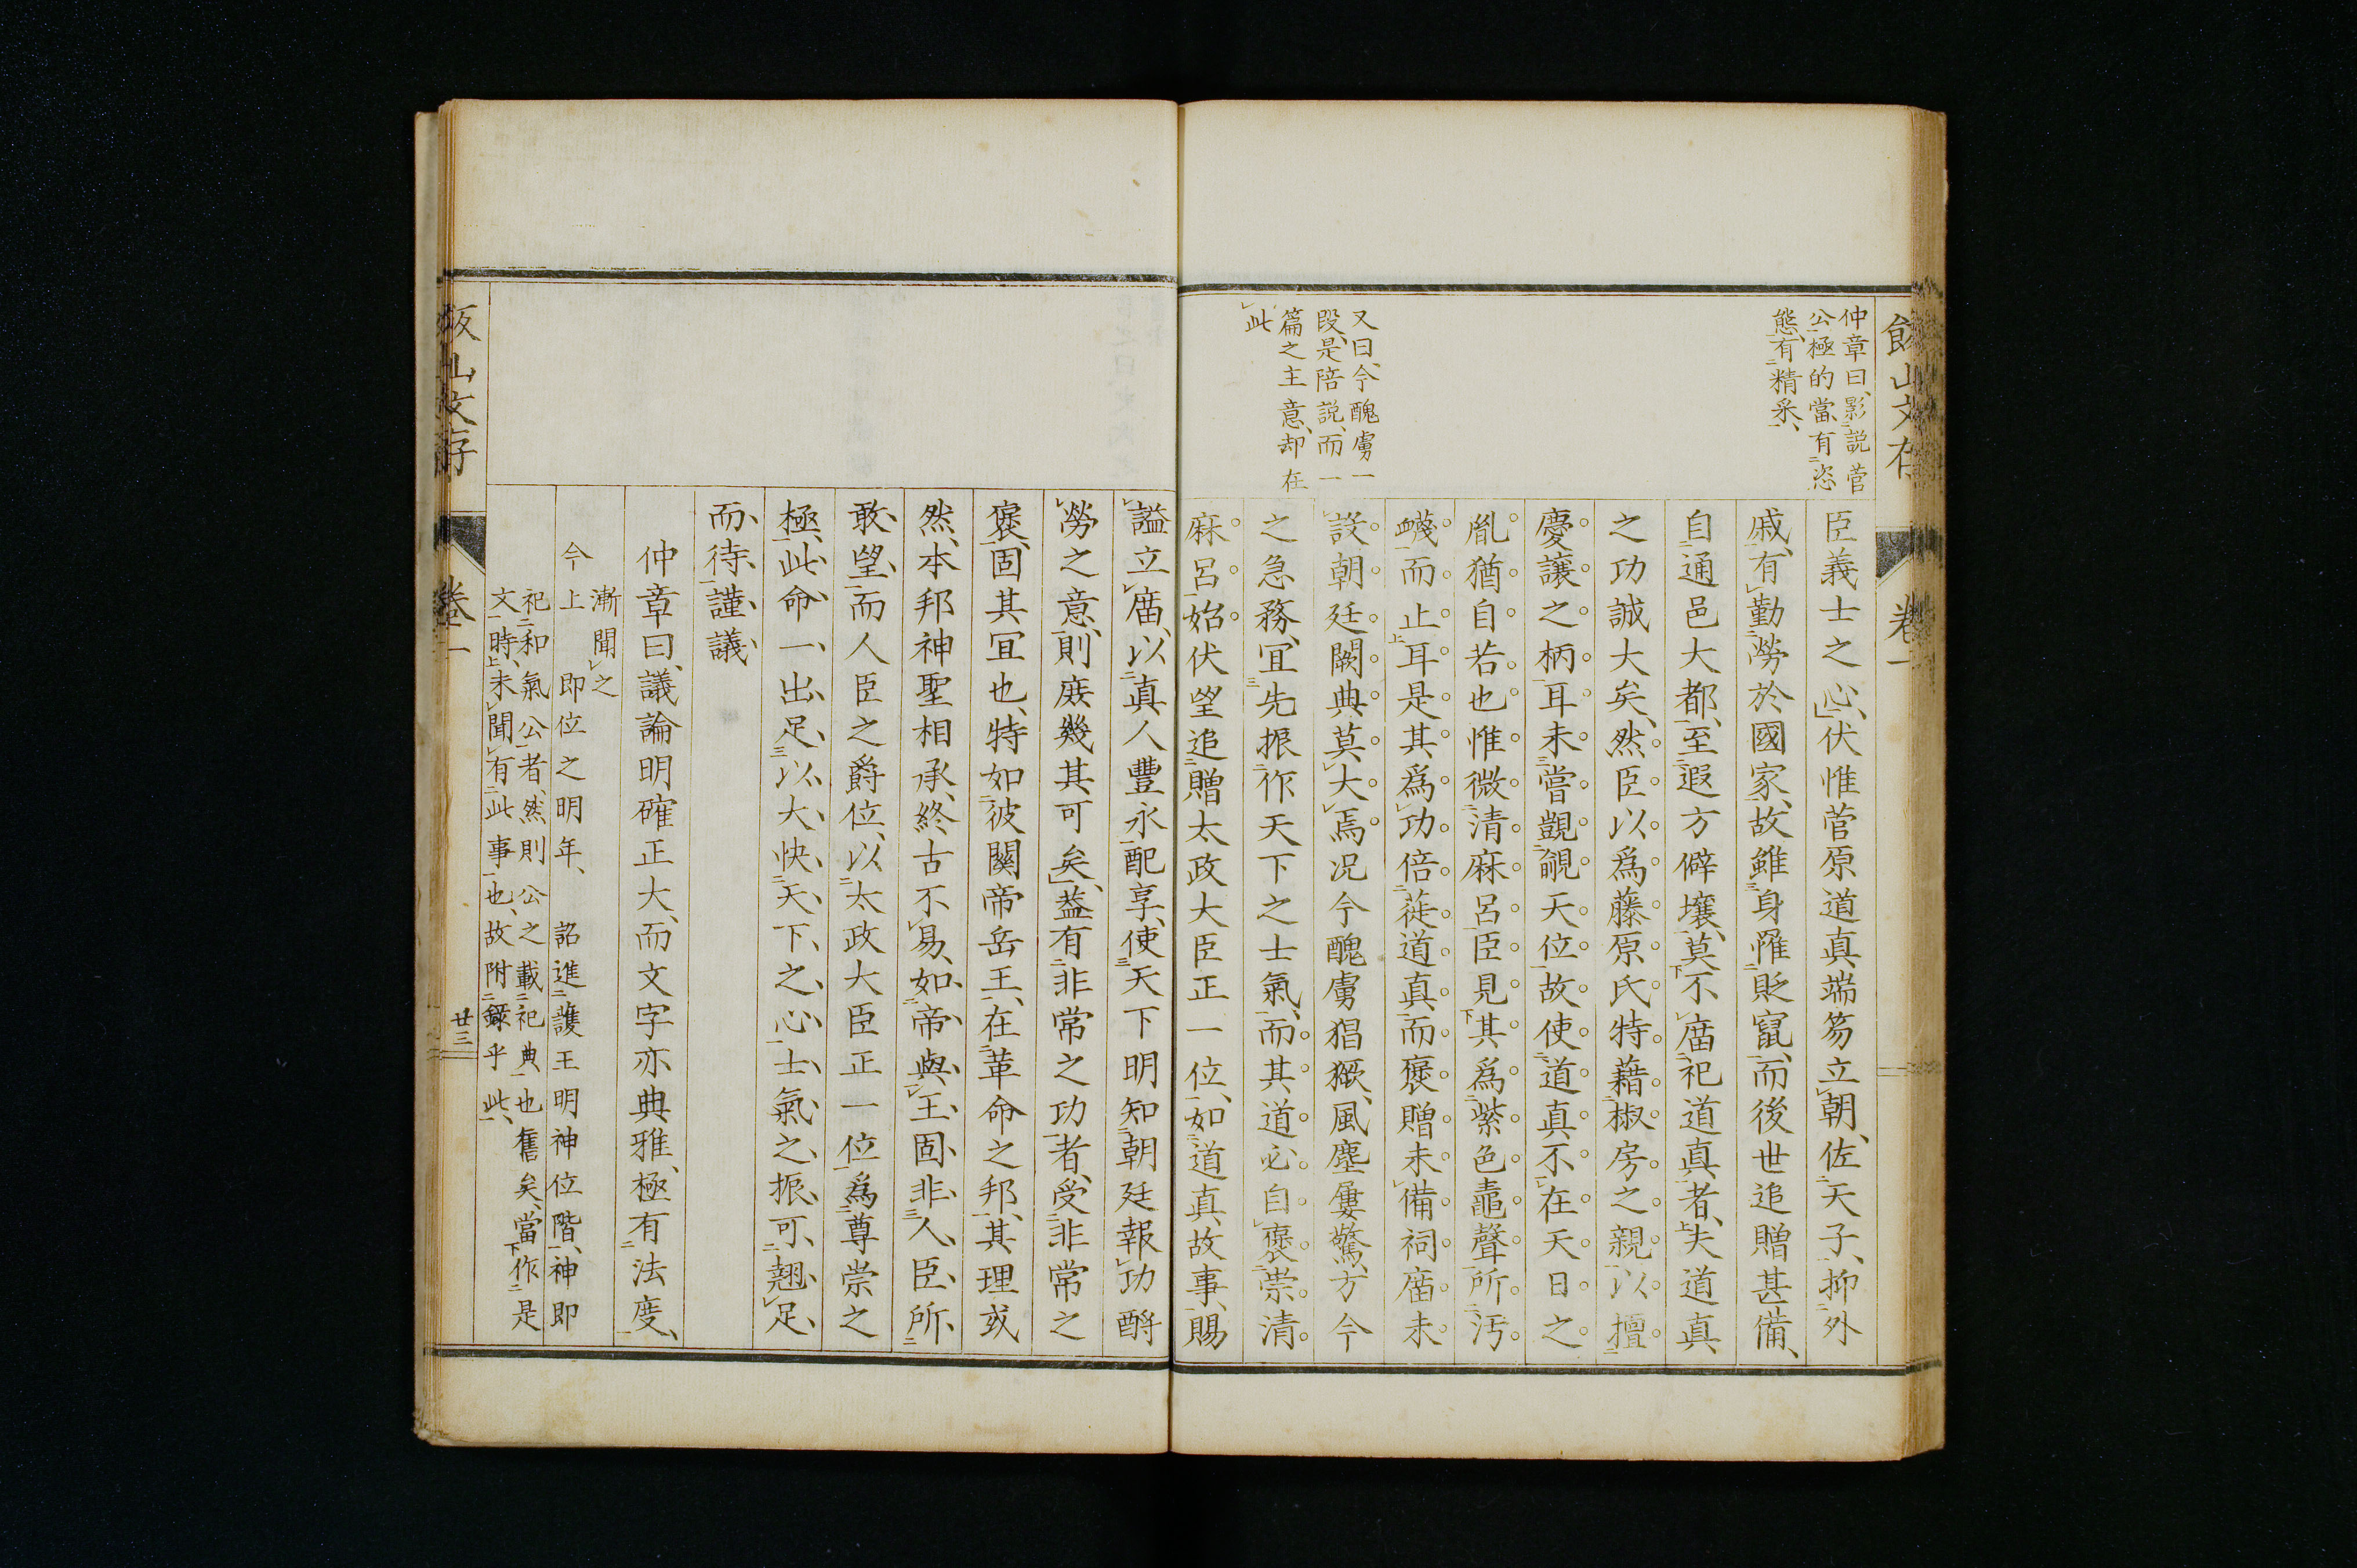 飯山文存
卷一
仲章曰、影説菅
公極的當、有恣
態、有精采、
又曰、今醜虜一
段、是陪説、而一
篇之主意、却在
此
臣義士之心、伏惟菅原道真端笏立朝、佐天子、抑外
戚、有勤勞於國家、故雖身罹貶竄、而後世追贈甚備、
自通邑大都、至遐方僻壤、莫不庿祀道真者、夫道真
之功誠大矣、然臣以爲藤原氏特藉椒房之親以擅
慶讓之柄耳未嘗覬覦天位故使道真不在天日之
胤猶自若也惟微清麻呂臣見其爲紫色鼃聲所汚
衊而止耳是其爲功倍蓰道真而褒贈未備祠庿未
設朝廷闕典莫大焉況今醜虜猖獗、風塵屢驚、方今
之急務、宜先振作天下之士氣、而其道必自褒崇清
麻呂始伏望追贈太政大臣正一位、如道真故事、賜
謚立庿、以真人豐永配享、使天下明知朝廷報功酹
勞之意、則庶幾其可矣、葢有非常之功者、受非常之
褒、固其宜也、特如彼關帝岳王、在革命之邦、其理或
然、本邦神聖相承、終古不易、如帝與王、固非人臣所
敢望、而人臣之爵位、以太政大臣正一位爲尊崇之
極、此命一出、足以大快天下之心、士氣之振、可翹足
而待、謹議
仲章曰、議論明確正大、而文字亦典雅、極有法度、
漸聞之
今上即位之明年、詔進護王明神位階、神即
祀和氣公者、然則公之載祀典也舊矣、當作是
文時、未聞有此事也、故附錄乎此、
飯山文存
卷一
廿三